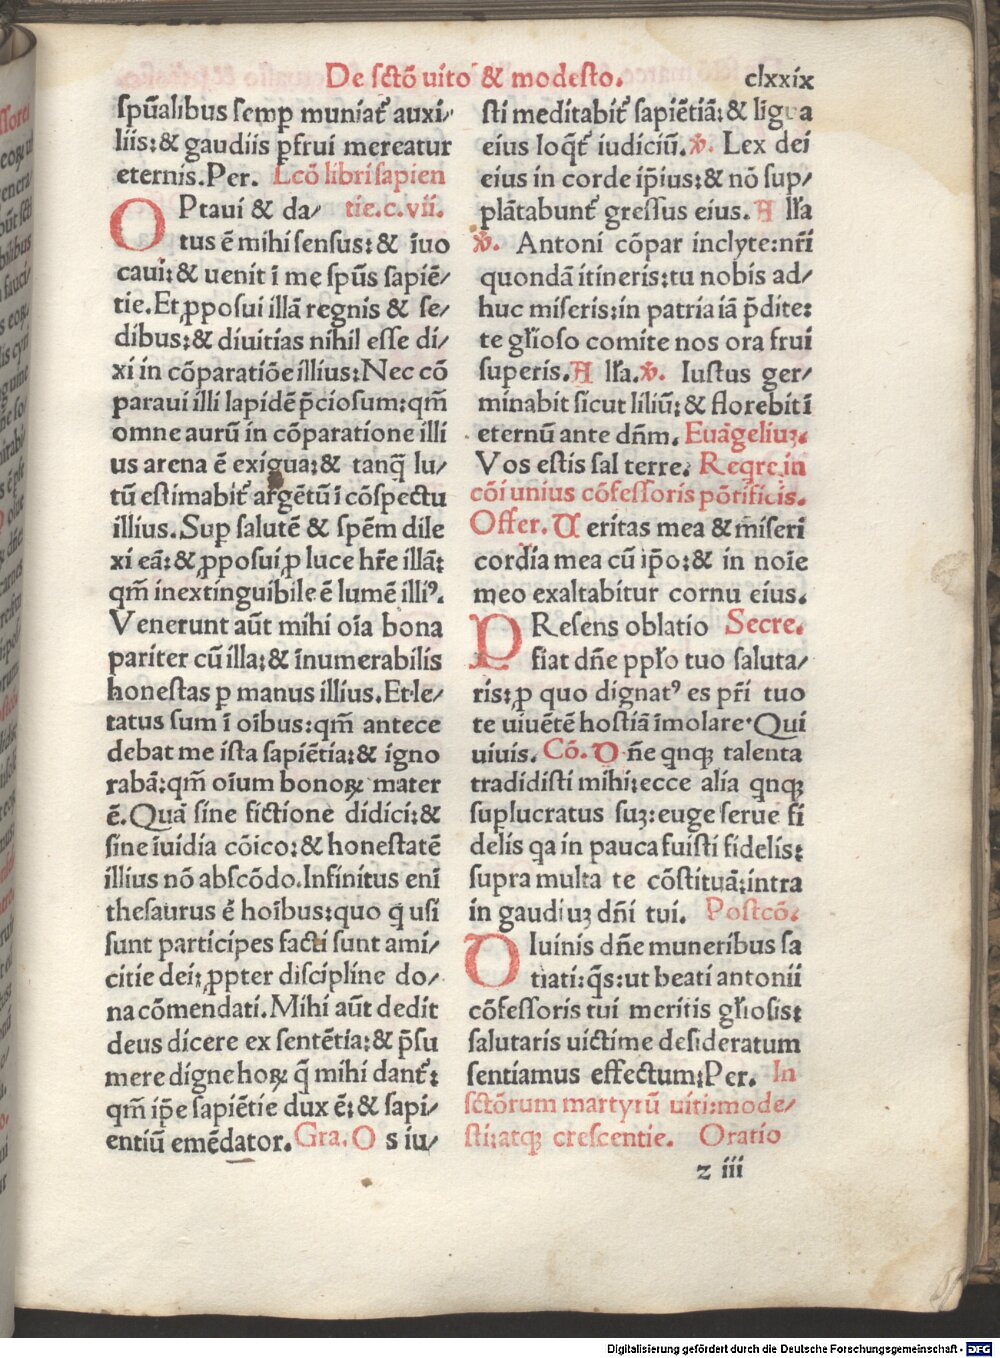 De sctō uito & modesto. clxxix
spūalibus semp muniat᷒ auxi⸗
liis: & gaudiis pfrui mereatur
eternis. Per. Lcō libri sapien
OPtaui & da⸗ tie.c.vii.
tus ē mihi sensus: & īuo
caui: & uenit ī me spūs sapiē⸗
tie. Et ꝓposui illā regnis & se⸗
dibus: & diuitias nihil esse di⸗
xi in cōparatiōe illius: Nec cō
paraui illi lapidē p̄ciosum: qm̄
omne aurū in cōparatione illi
us arena ē exigua: & tanq̄ lu⸗
tū estimabit᷒ argētū ī cōspectu
illius. Sup salutē & spēm dile
xi eā: & ꝓposui ꝓ luce hr̄e illā:
qm̄ inextinguibile ē lumē illiꝰ.
Venerunt aūt mihi oīa bona
pariter cū illa: & īnumerabilis
honestas p manus illius. Et le⸗
tatus sum ī oībus: qm̄ antece
debat me ista sapiētia: & igno
rabā: qm̄ oīum bonoꝝ mater
ē. Quā sine fictione didici: &
sine īuidia cōico: & honestatē
illius nō abscōdo. Infinitus eni
thesaurus ē hoībus: quo q̄ usi
sunt participes facti sunt ami⸗
citie dei: ꝓpter discipline do⸗
na cōmendati. Mihi aūt dedit
deus dicere ex sentētia: & p̄su
mere digne hoꝝ q̄ mihi dant᷒:
qm̄ ip̄e sapiētie dux ē: & sapi⸗
entiū emēdator. Gra. Os iu⸗
sti meditabit᷒ sapiētiā: & ligua
eius loq̄t᷒ iudiciū. ꝟ. Lex dei
eius in corde ip̄ius: & nō sup⸗
plātabunt᷒ gressus eius. Alľa
ꝟ. Antoni cōpar inclyte: nr̄i
quondā itineris: tu nobis ad⸗
huc miseris: in patria iā p̄dite:
te gľioso comite nos ora frui
superis. Alľa. ꝟ. Iustus ger⸗
minabit sicut liliū: & florebit ī
eternū ante dn̄m. Euāgeliuꝫ.
Vos estis sal terre. Reqre in
cōi unius cōfessoris pōtificis.
Offer. Ueritas mea & miseri
cordia mea cū ip̄o: & in noīe
meo exaltabitur cornu eius.
PResens oblatio Secre.
fiat dn̄e ppľo tuo saluta⸗
ris: ꝓ quo dignatꝰ es pr̄i tuo
te uiuētē hostiā īmolare. Qui
uiuis. Cō. Dn̄e qnqꝫ talenta
tradidisti mihi: ecce alia qnqꝫ
suplucratus suꝫ: euge serue fi
delis qa in pauca fuisti fidelis:
supra multa te cōstituā: intra
in gaudiuꝫ dn̄i tui. Postcō.
DIuinis dn̄e muneribus sa
tiati: q̄s: ut beati antonii
cōfessoris tui meritis gľiosis:
salutaris uictime desideratum
sentiamus effectum: Per. In
sctōrum martyrū uiti: mode⸗
sti: atqꝫ crescentie. Oratio
z iii
Digitalisierung gefördert durch die Deutsche Forschungsgemeinschaft - DFG